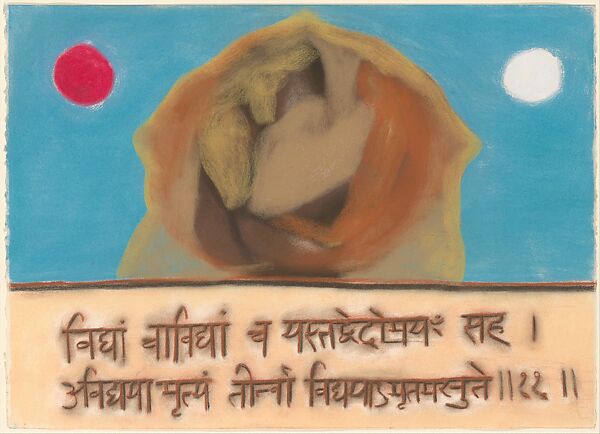 विद्यां चाविद्यां च यस्तद्वेदोभयँ सह ।
अविद्यया मृत्युं तीर्त्वा विद्ययाऽमृतमश्नुते ॥११॥